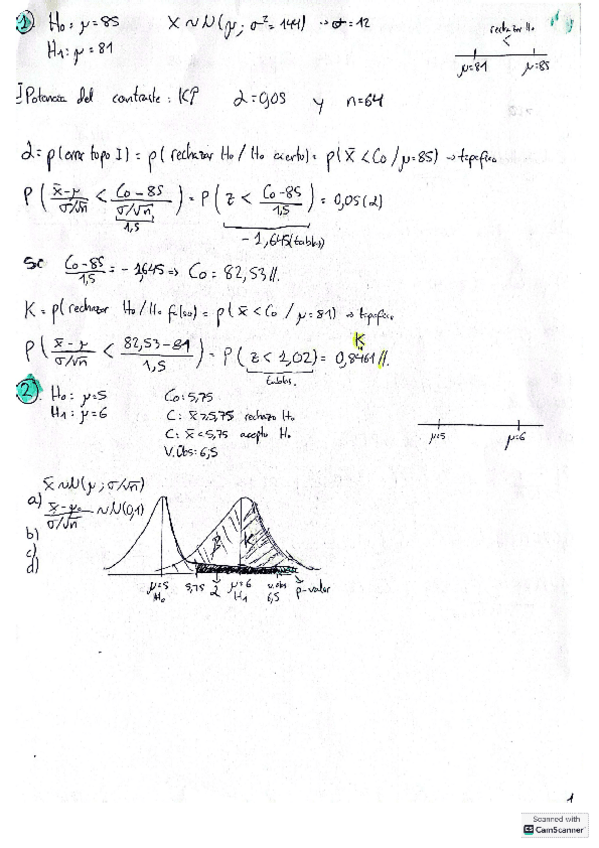 1) H₀: μ=85   X ~ N(μ; σ²=144) → σ=12
rechazar H₀
<
H₁: μ=81
μ=81   μ=85
¿Potencia del contraste: K?   α=0,05 y n=64
α = p(error tipo I) = p(rechazar H₀ / H₀ cierto) = p(x̄ < C₀ / μ=85) →
P( x̄-μ / σ/√n < C₀-85 / σ/√n ) = P( z < C₀-85 / 1,5 ) = 0,05(α)
1,5
-1,645(tablas)
Si C₀-85 / 1,5 = -1,645 => C₀ = 82,53//.
K = p(rechazar H₀ / H₀ falso) = p(x̄ < C₀ / μ=81) →
P( x̄-μ / σ/√n < 82,53-81 / 1,5 ) = P( z < 1,02 ) = 0,8461//.
K
tablas.
2) H₀: μ=5   C₀=5,75
H₁: μ=6   C: x̄≥5,75 rechazo H₀
C: x̄<5,75 acepto H₀
V.Obs=6,5
μ=5   μ=6
x̄~N(μ; σ/√n)
a) x̄-μ₀ / σ/√n ~ N(0,1)
b)
c)
d)
β   K
μ=5   5,75   α   μ=6   v.obs   p-valor
H₀   H₁   6,5
1
Scanned with
CS CamScanner